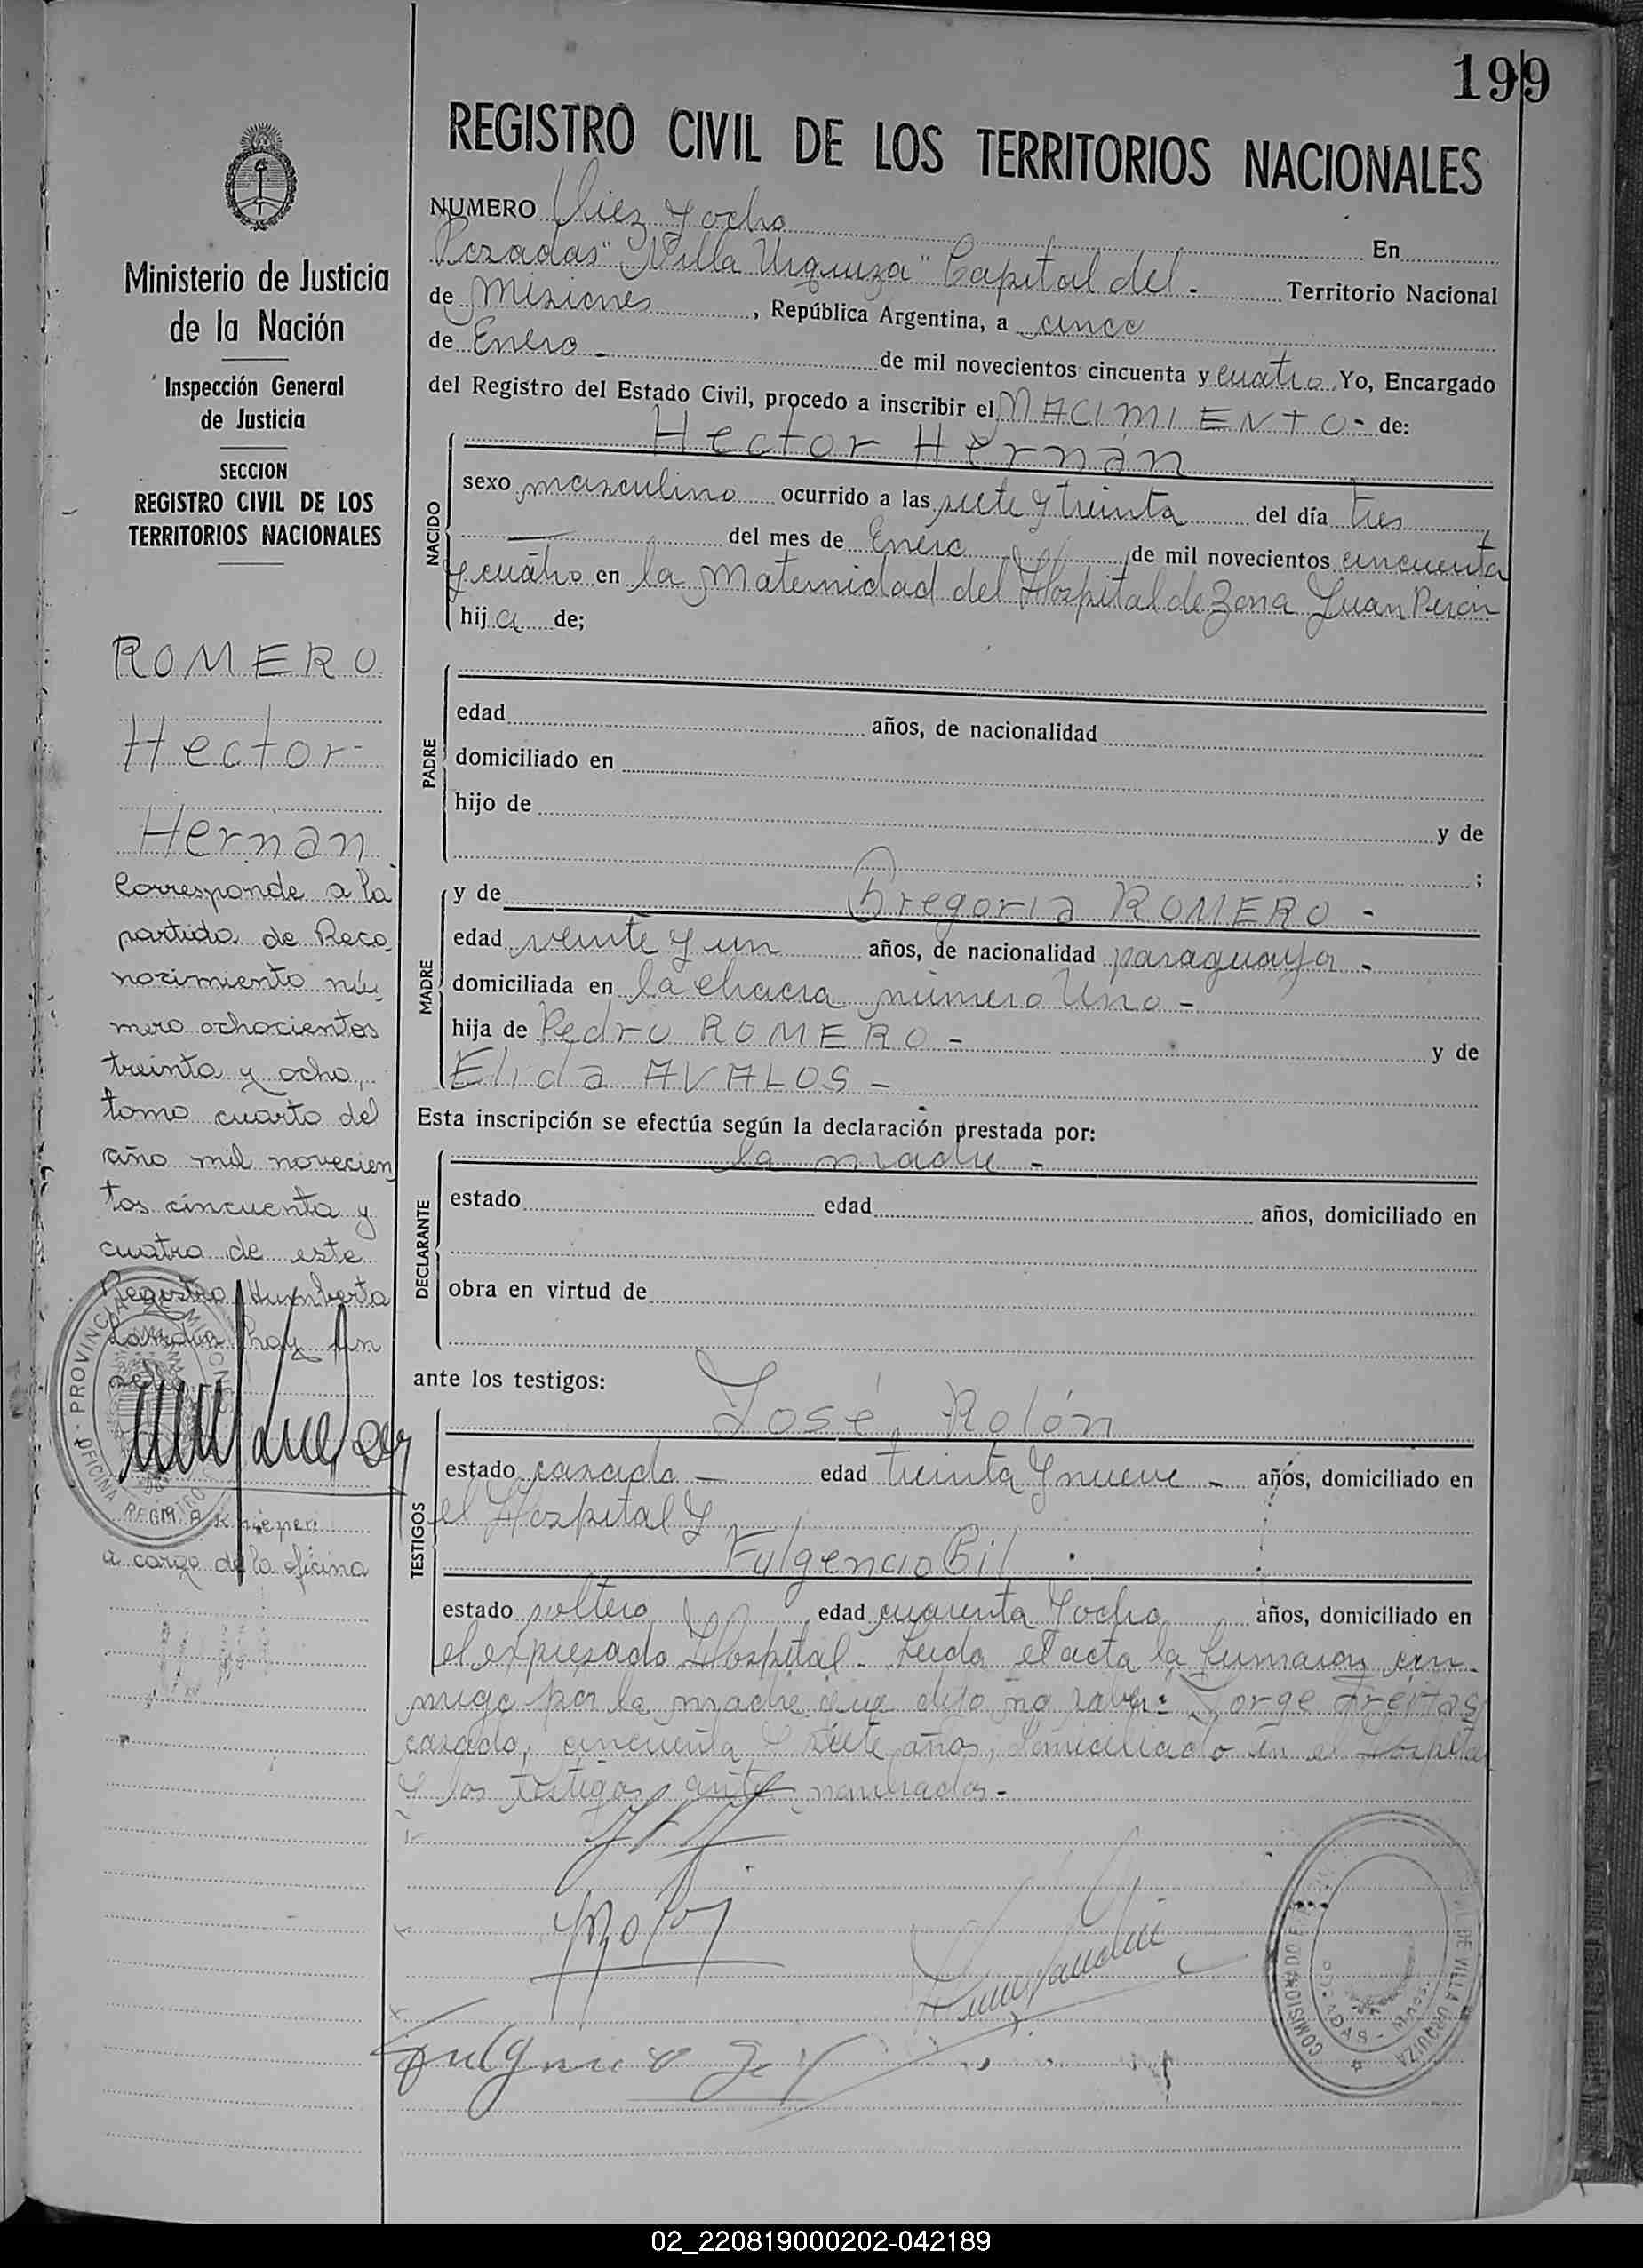 199
REGISTRO CIVIL DE LOS TERRITORIOS NACIONALES
NUMERO Diez y ocho En
Posadas "Villa Urquiza" Capital del - Territorio Nacional
de Misiones, República Argentina, a cinco
de Enero - de mil novecientos cincuenta y cuatro Yo, Encargado
del Registro del Estado Civil, procedo a inscribir el NACIMIENTO - de:
NACIDO
Hector Hernán
sexo masculino ocurrido a las siete y treinta del día tres
del mes de Enero de mil novecientos cincuenta
y cuatro en la Maternidad del Hospital de Zona Juan Perón
hij a de;
PADRE
edad años, de nacionalidad
domiciliado en
hijo de y de
;
MADRE
y de Gregoria ROMERO -
edad veinte y un años, de nacionalidad paraguaya -
domiciliada en la chacra número Uno -
hija de Pedro ROMERO - y de
Elida AVALOS -
Esta inscripción se efectúa según la declaración prestada por:
DECLARANTE
la madre -
estado edad años, domiciliado en
obra en virtud de
ante los testigos:
TESTIGOS
José Rolón
estado casado - edad treinta y nueve - años, domiciliado en
el Hospital y
Fulgencio Gil
estado soltero edad cuarenta y ocho años, domiciliado en
el expresado Hospital - Leida el acta la firmaron con-
migo por la madre que dijo no saber: Jorge Freitas
casado, cincuenta y siete años, domiciliado en el Hospital
y los testigos antes nombrados -
Ministerio de Justicia
de la Nación
Inspección General
de Justicia
SECCION
REGISTRO CIVIL DE LOS
TERRITORIOS NACIONALES
ROMERO
Hector
Hernán
Corresponde a la
partida de Reco
nocimiento nú
mero ochocientos
treinta y ocho,
tomo cuarto del
año mil novecien
tos cincuenta y
cuatro de este
Registro Humberto
a cargo de la oficina
PROVINCIA MISIONES
OFICINA REGISTRO
COMISIONADO DE VILLA URQUIZA
POSADAS - MNES.
02_220819000202-042189